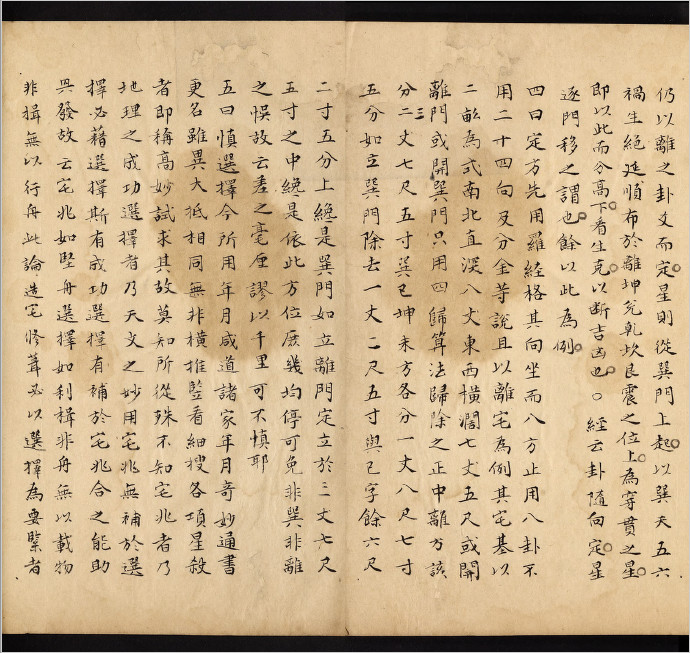 仍以離之卦爻而定星則從巽門上起以巽天五六
禍生絕延順布於離坤兌乾坎艮震之位上為穿貫之星
即以此而分高下看生克以斷吉凶也○經云卦隨向定星
逐門移之謂也餘以此為例
四曰定方先用羅經格其向坐而八方止用八卦不
用二十四向及分金等說且以離宅為例其宅基以
二畝為式南北直深八丈東西橫濶七丈五尺或開
離門或開巽門只用四歸算法歸除之正中離方該
分二丈七尺五寸巽巳坤未方各分一丈八尺七寸
三
五分如立巽門除去一丈二尺五寸與巳字餘六尺
二寸五分上總是巽門如立離門定立於三丈七尺
五寸之中總是依此方位庶幾均停可免非巽非離
之悞故云差之毫厘謬以千里可不慎耶
五曰慎選擇今所用年月咸道諸家年月奇妙通書
更名雖異大抵相同無非橫推豎看細搜各項星殺
者即稱高妙試求其故莫知所從殊不知宅兆者乃
地理之成功選擇者乃天文之妙用宅兆無補於選
擇必藉選擇斯有成功選擇有補於宅兆合之能助
與發故云宅兆如堅舟選擇如利楫非舟無以載物
非揖無以行舟此論造宅修葺必以選擇為要緊者